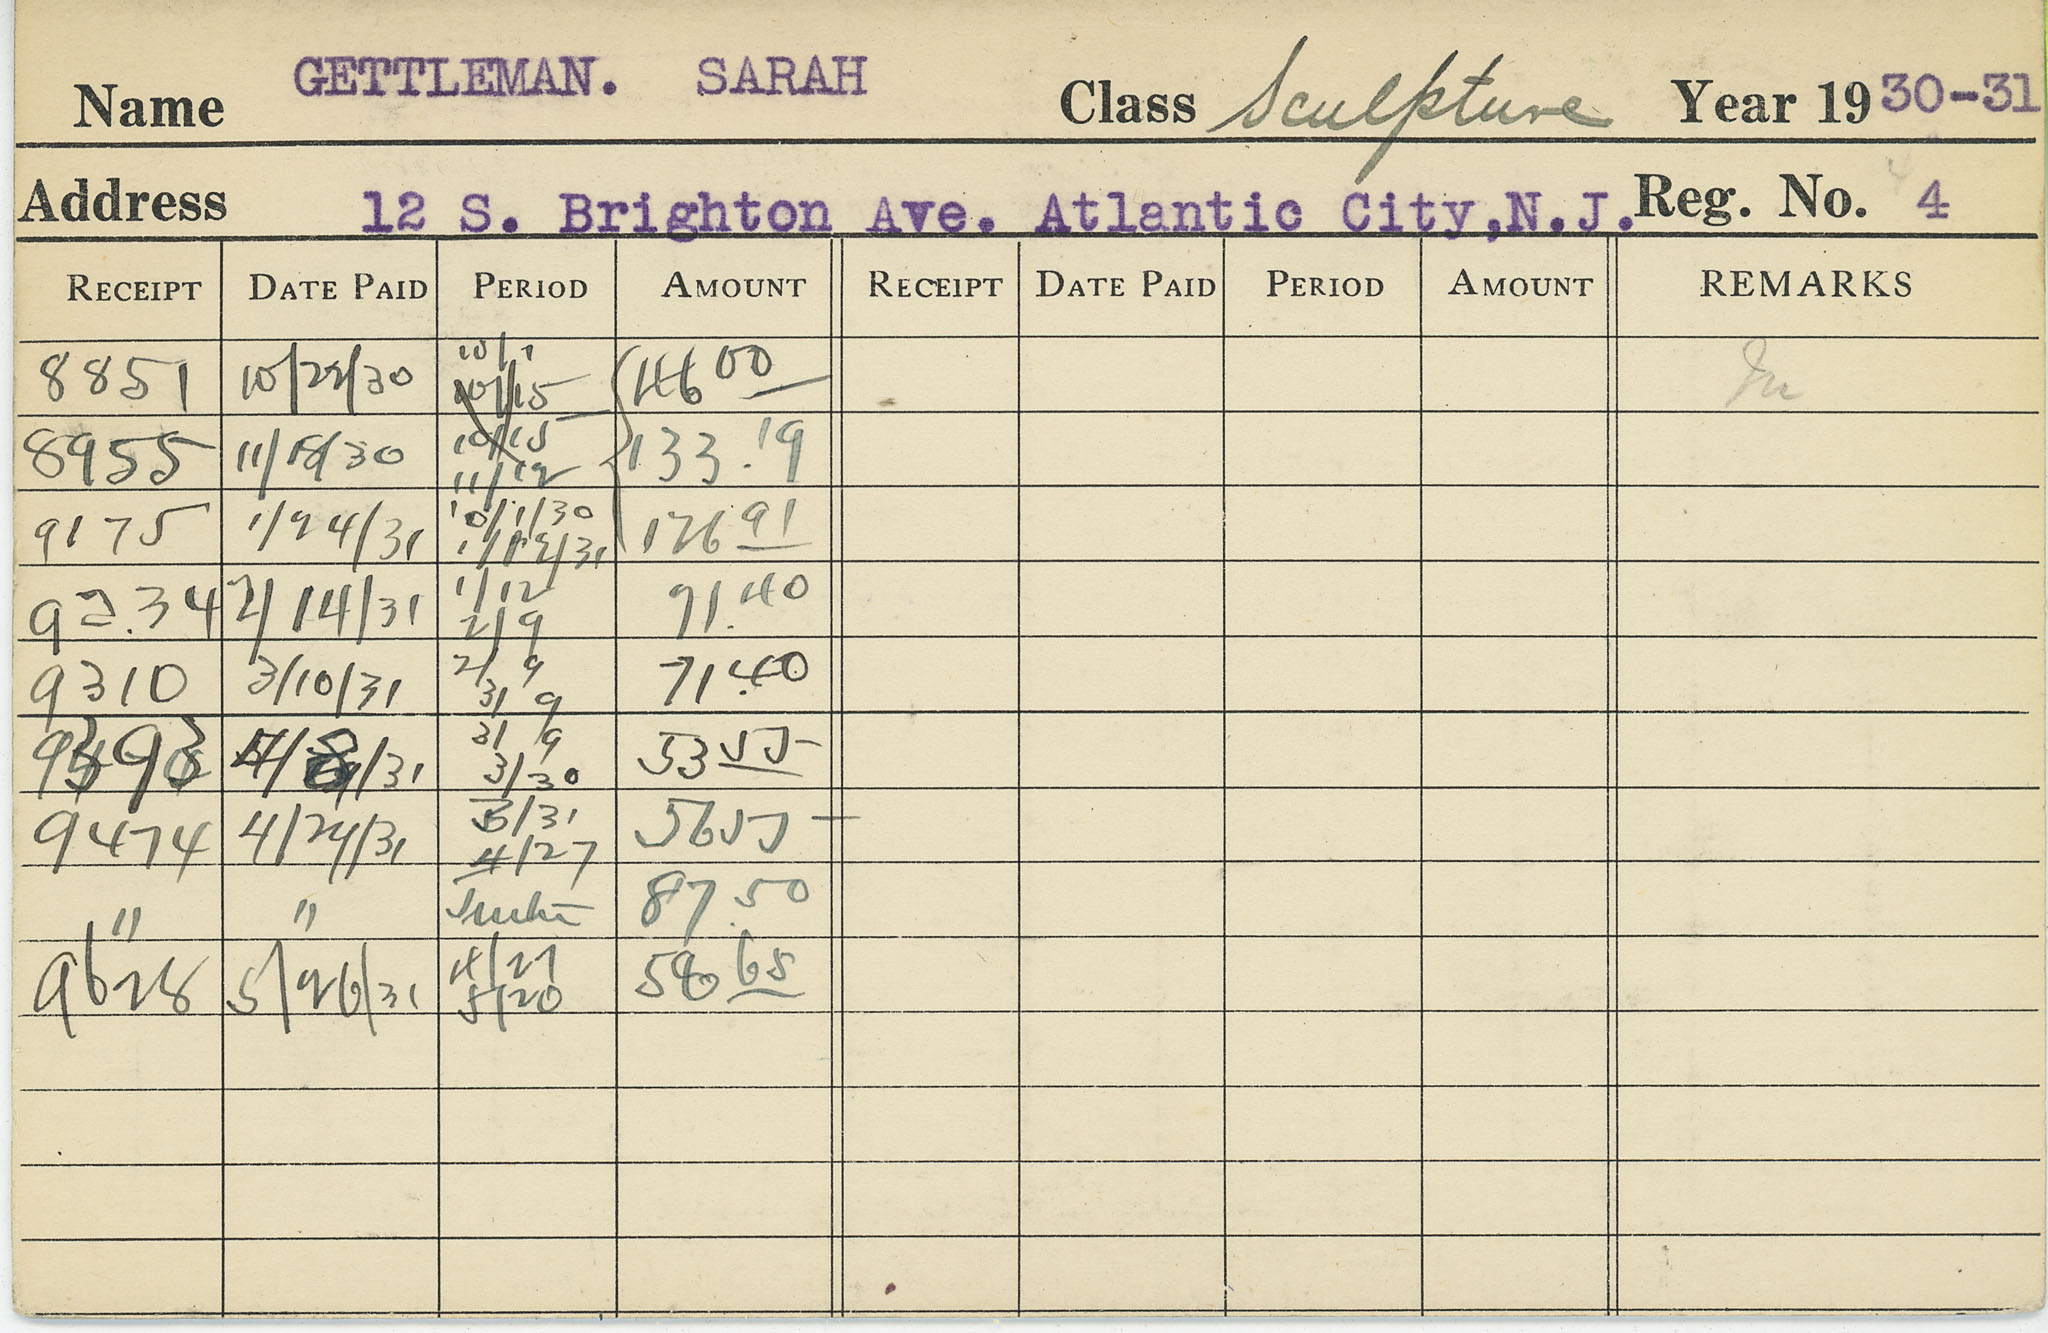 Name GETTLEMAN. SARAH Class Sculpture Year 1930-31
Address 12 S. Brighton Ave. Atlantic City,N.J. Reg. No. 4
RECEIPT DATE PAID PERIOD AMOUNT RECEIPT DATE PAID PERIOD AMOUNT REMARKS
10/1
8851 10/22/30 10/15 146 00
10/15
8955 11/18/30 11/12 133.19
10/1/30
9175 1/24/31 1/12/31 126 91
1/12
9234 2/14/31 2/9 91.40
2/9
9310 3/10/31 3/9 71.40
3/9
9393 4/8/31 3/30 53 55
3/31
9474 4/29/31 4/27 56 55
" " 87.50
4/27
9628 5/26/31 5/20 58 65